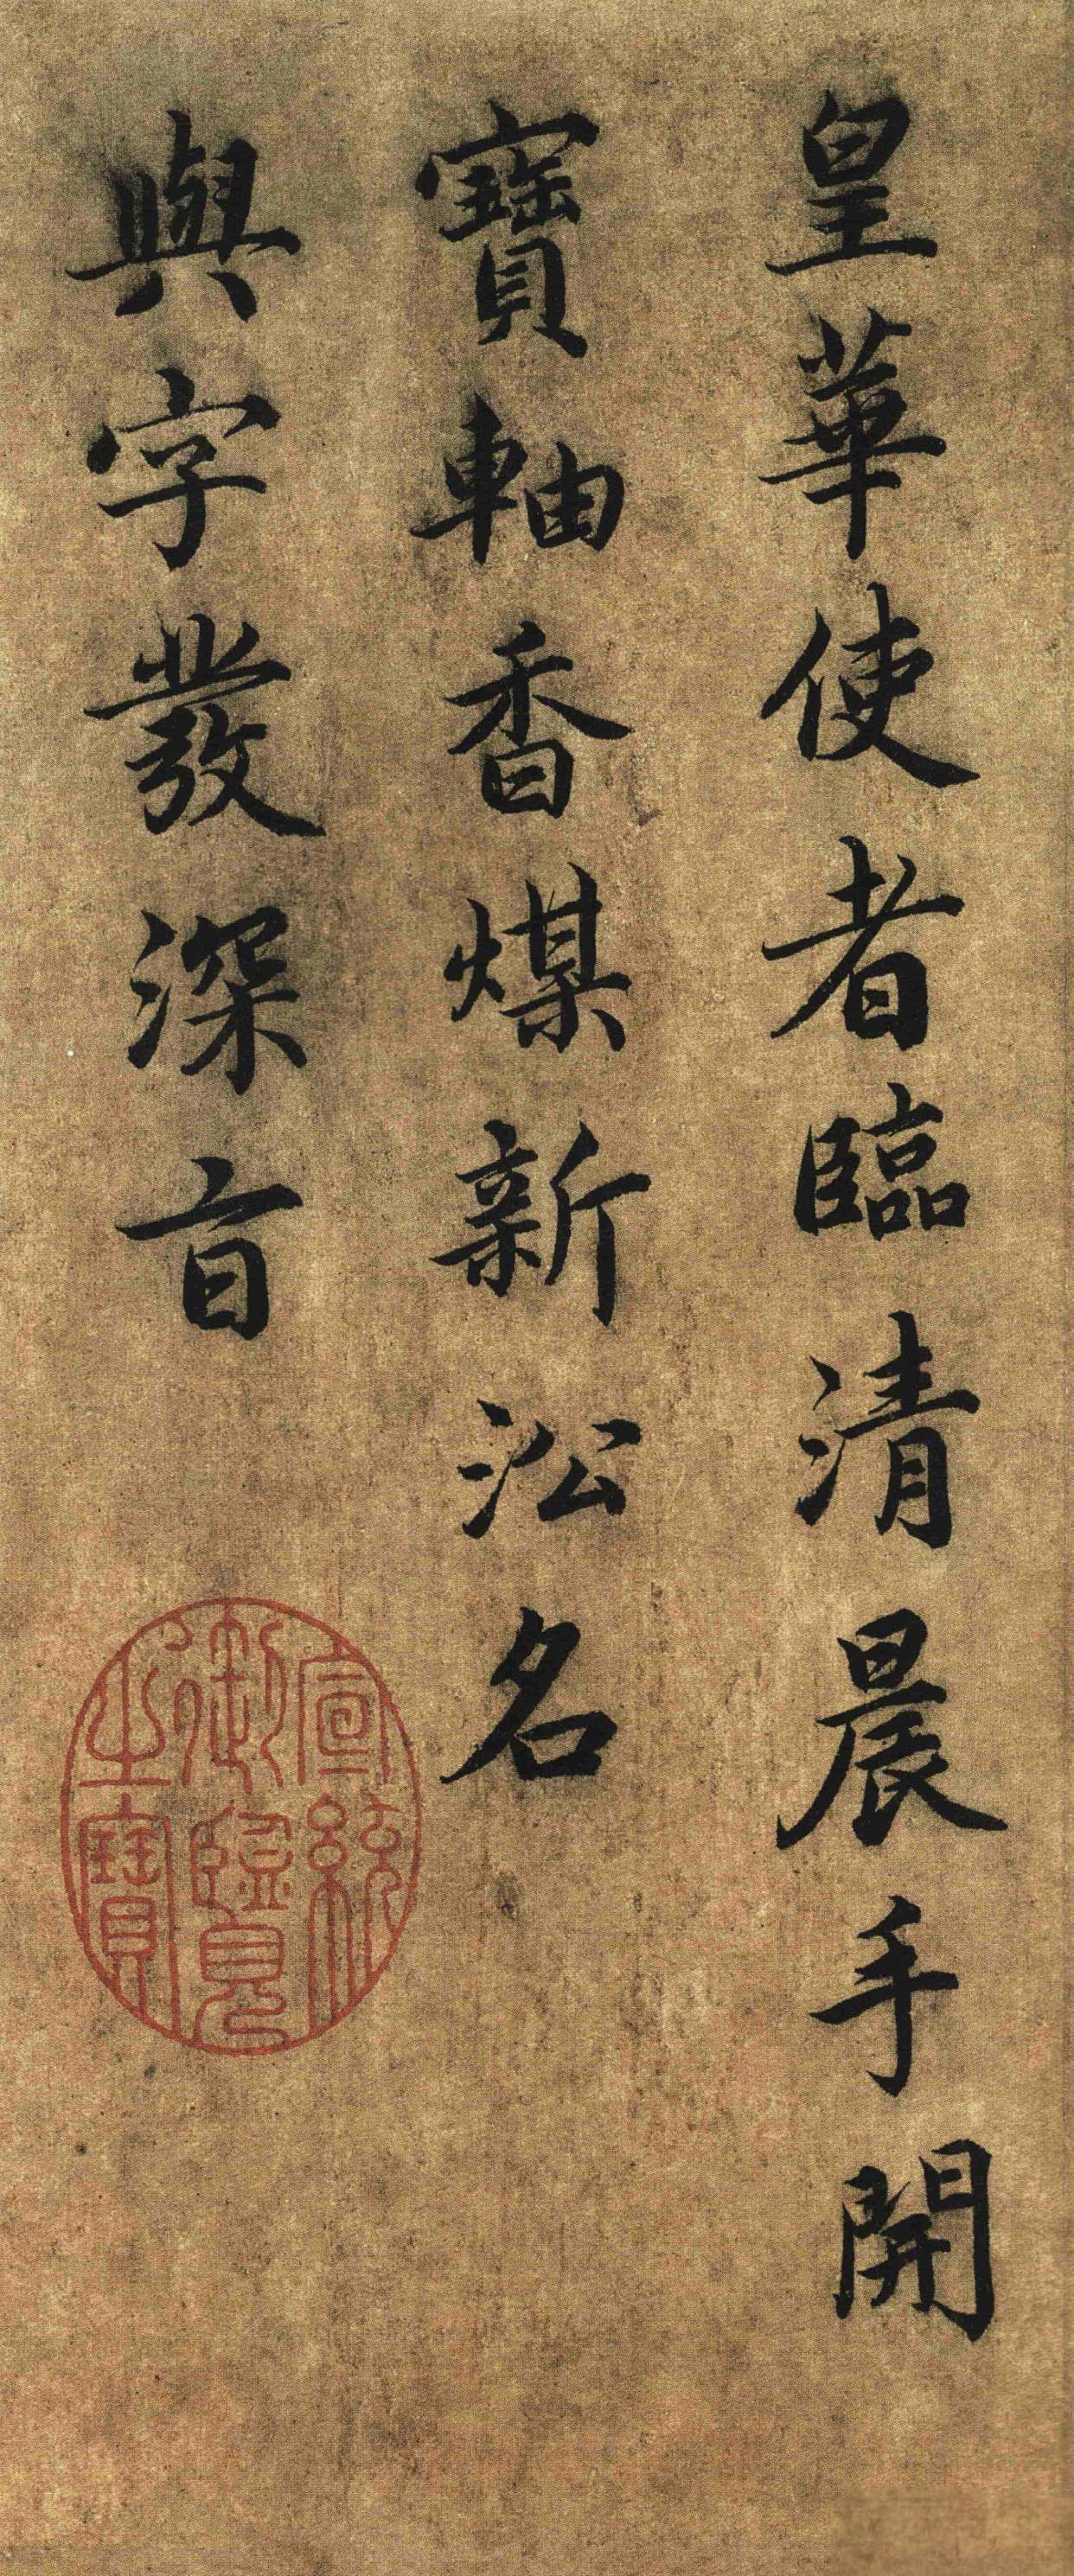 皇華使者臨清晨手開
寶軸香煤新㳂名
與字發深旨
宣統
御覽
之寶